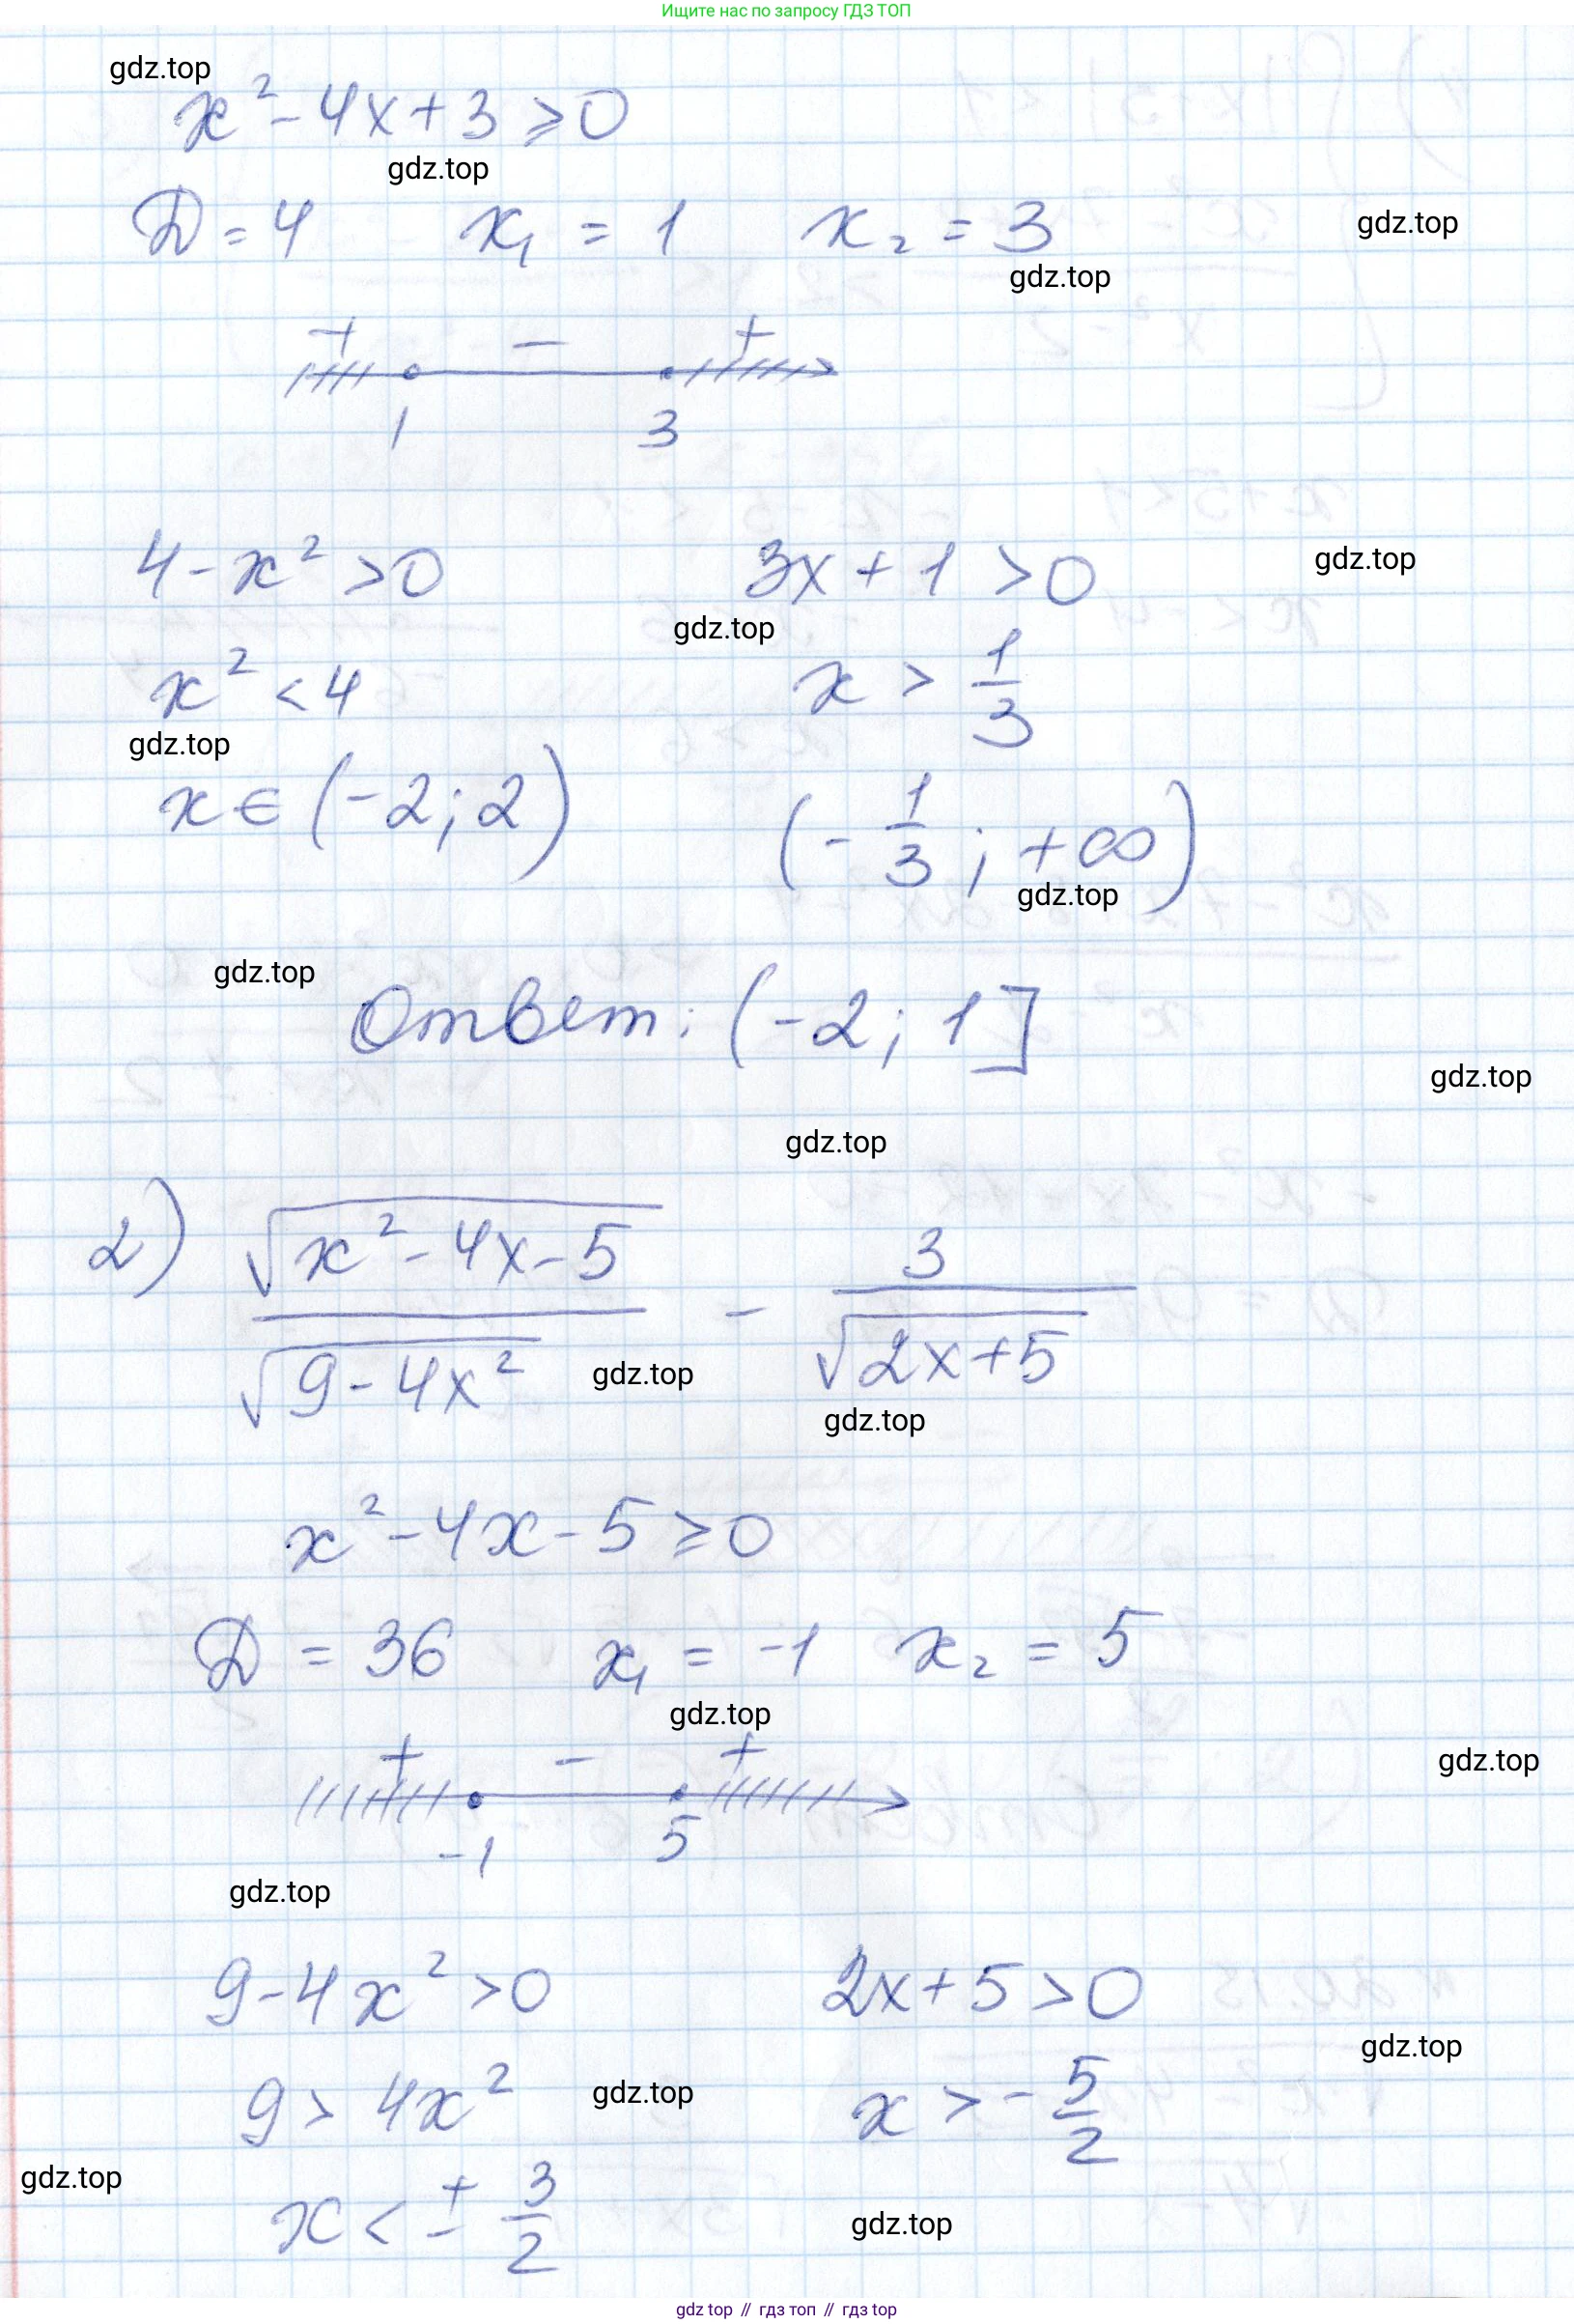 Ищите нас по запросу ГДЗ ТОП
gdz.top
x² - 4x + 3 ≥ 0
gdz.top
D = 4 x₁ = 1 x₂ = 3
gdz.top
gdz.top
+ - +
1 3
4 - x² > 0 3x + 1 > 0
gdz.top
gdz.top
x² < 4 x > 1/3
gdz.top
x ∈ (-2; 2) (-1/3; +∞)
gdz.top
gdz.top
Ответ: (-2; 1]
gdz.top
gdz.top
2) √(x² - 4x - 5)/√(9 - 4x²) - 3/√(2x + 5)
gdz.top
gdz.top
x² - 4x - 5 ≥ 0
D = 36 x₁ = -1 x₂ = 5
gdz.top
+ - +
gdz.top
-1 5
gdz.top
9 - 4x² > 0 2x + 5 > 0
gdz.top
9 > 4x² x > -5/2
gdz.top
gdz.top
x < ± 3/2
gdz.top
gdz top // гдз топ // гдз top